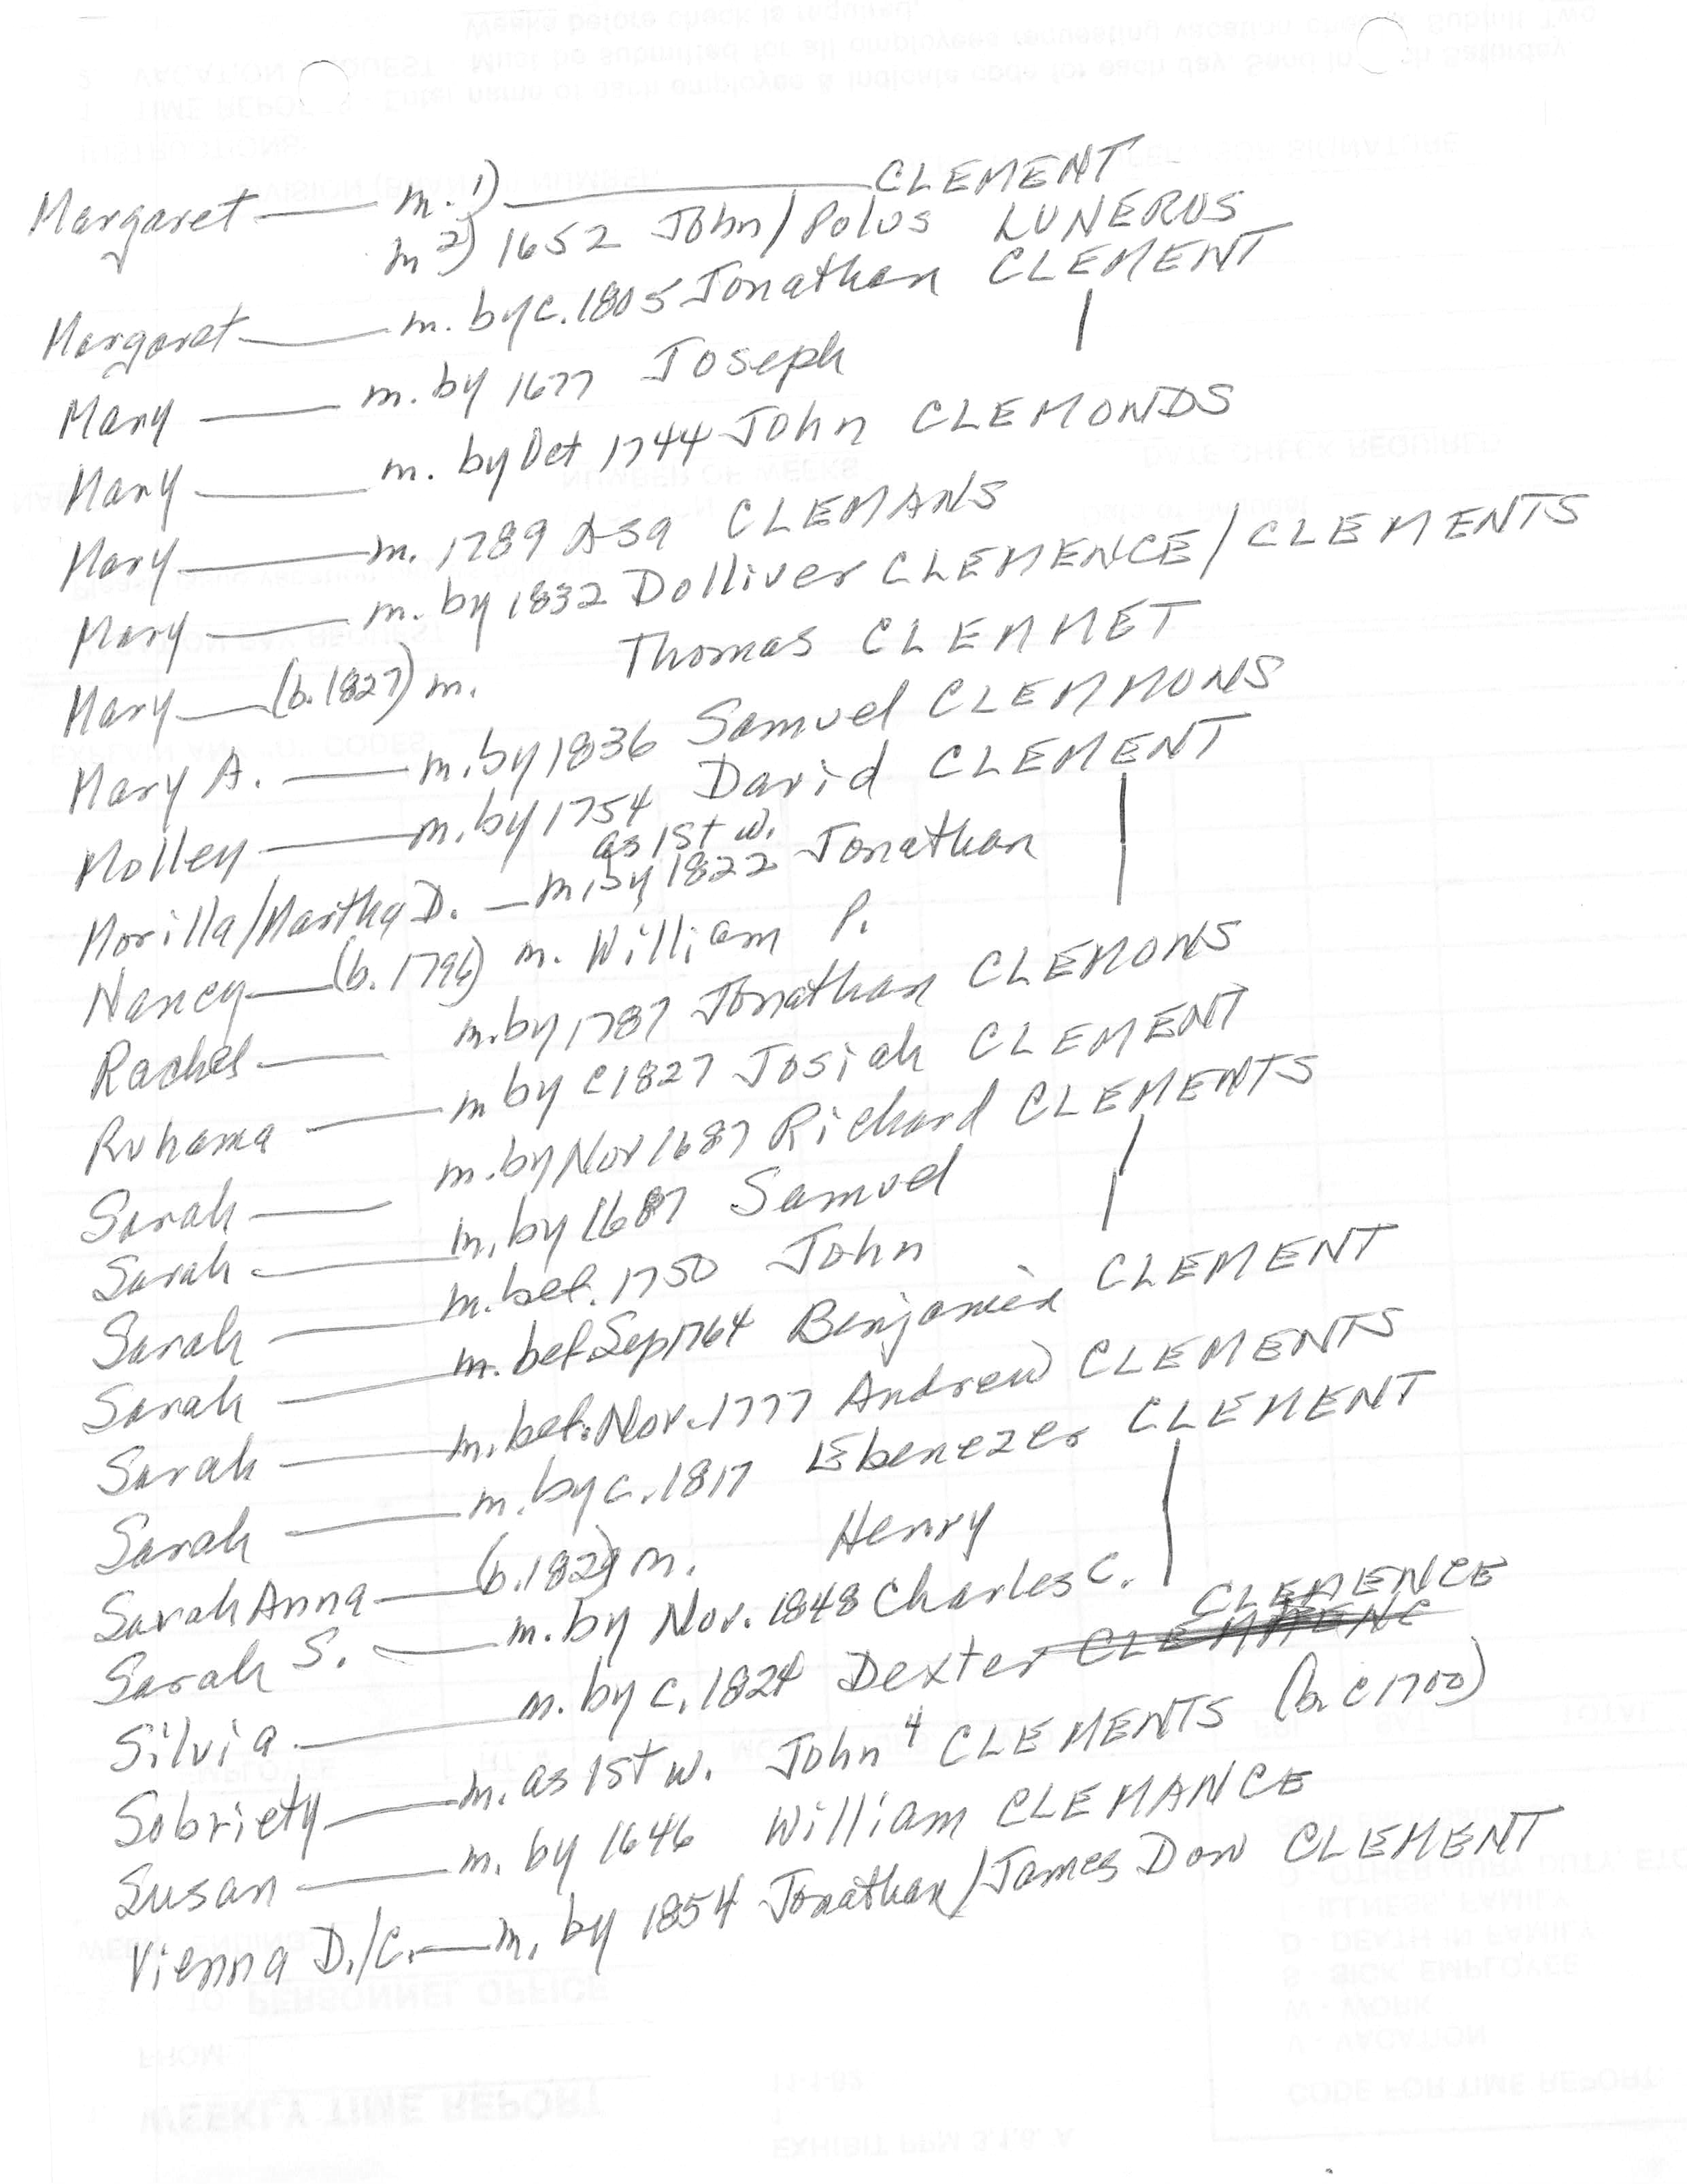 Margaret —— m. 1) ———— CLEMENT
m 2) 1652 John/Polus LUNERUS
Margaret —— m. by c. 1805 Jonathan CLEMENT
Mary —— m. by 1677 Joseph |
Mary —— m. by Oct 1744 John CLEMONDS
Mary —— m. 1789 Asa CLEMANS
Mary —— m. by 1832 Dolliver CLEMENCE/CLEMENTS
Mary —— (b. 1827) m. Thomas CLEMMET
Mary A. —— m. by 1836 Samuel CLEMMONS
Molley —— m. by 1754 David CLEMENT
as 1st w.
Morilla/Martha D. — m. by 1822 Jonathan |
Nancy —— (b. 1796) m. William P. |
Rachel —— m. by 1787 Jonathan CLEMONS
Ruhama —— m by c 1827 Josiah CLEMENT
Sarah —— m. by Nov 1687 Richard CLEMENTS
Sarah —— m. by 1687 Samuel |
Sarah —— m. bef. 1750 John |
Sarah —— m. bef. Sep 1764 Benjamin CLEMENT
Sarah —— m. bef. Nov. 1777 Andrew CLEMENTS
Sarah —— m. by c. 1817 Ebenezer CLEMENT
Sarah Anna —— (b. 1829) m. Henry |
Sarah S. —— m. by Nov. 1848 Charles C. |
CLEMENCE
Silvia —— m. by c. 1824 Dexter
Sobriety —— m. as 1st w. John 4 CLEMENTS (b. c 1700)
Susan —— m. by 1646 William CLEMANCE
Vienna D./C. —— m. by 1854 Jonathan/James Dow CLEMENT